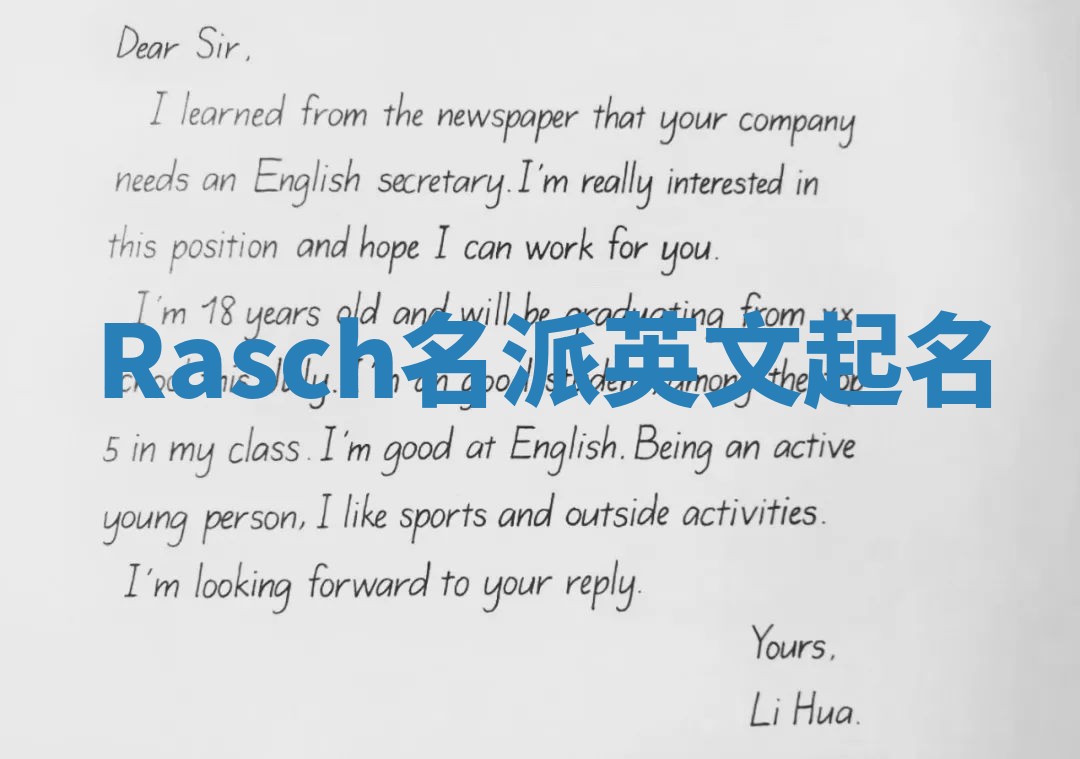 Dear Sir,
I learned from the newspaper that your company
needs an English secretary. I'm really interested in
this position and hope I can work for you.
I'm 18 years old and will be graduating from xx
Rasch名派英文起名
school this July. I'm an good student, among the top
5 in my class. I'm good at English. Being an active
young person, I like sports and outside activities.
I'm looking forward to your reply.
Yours,
Li Hua.